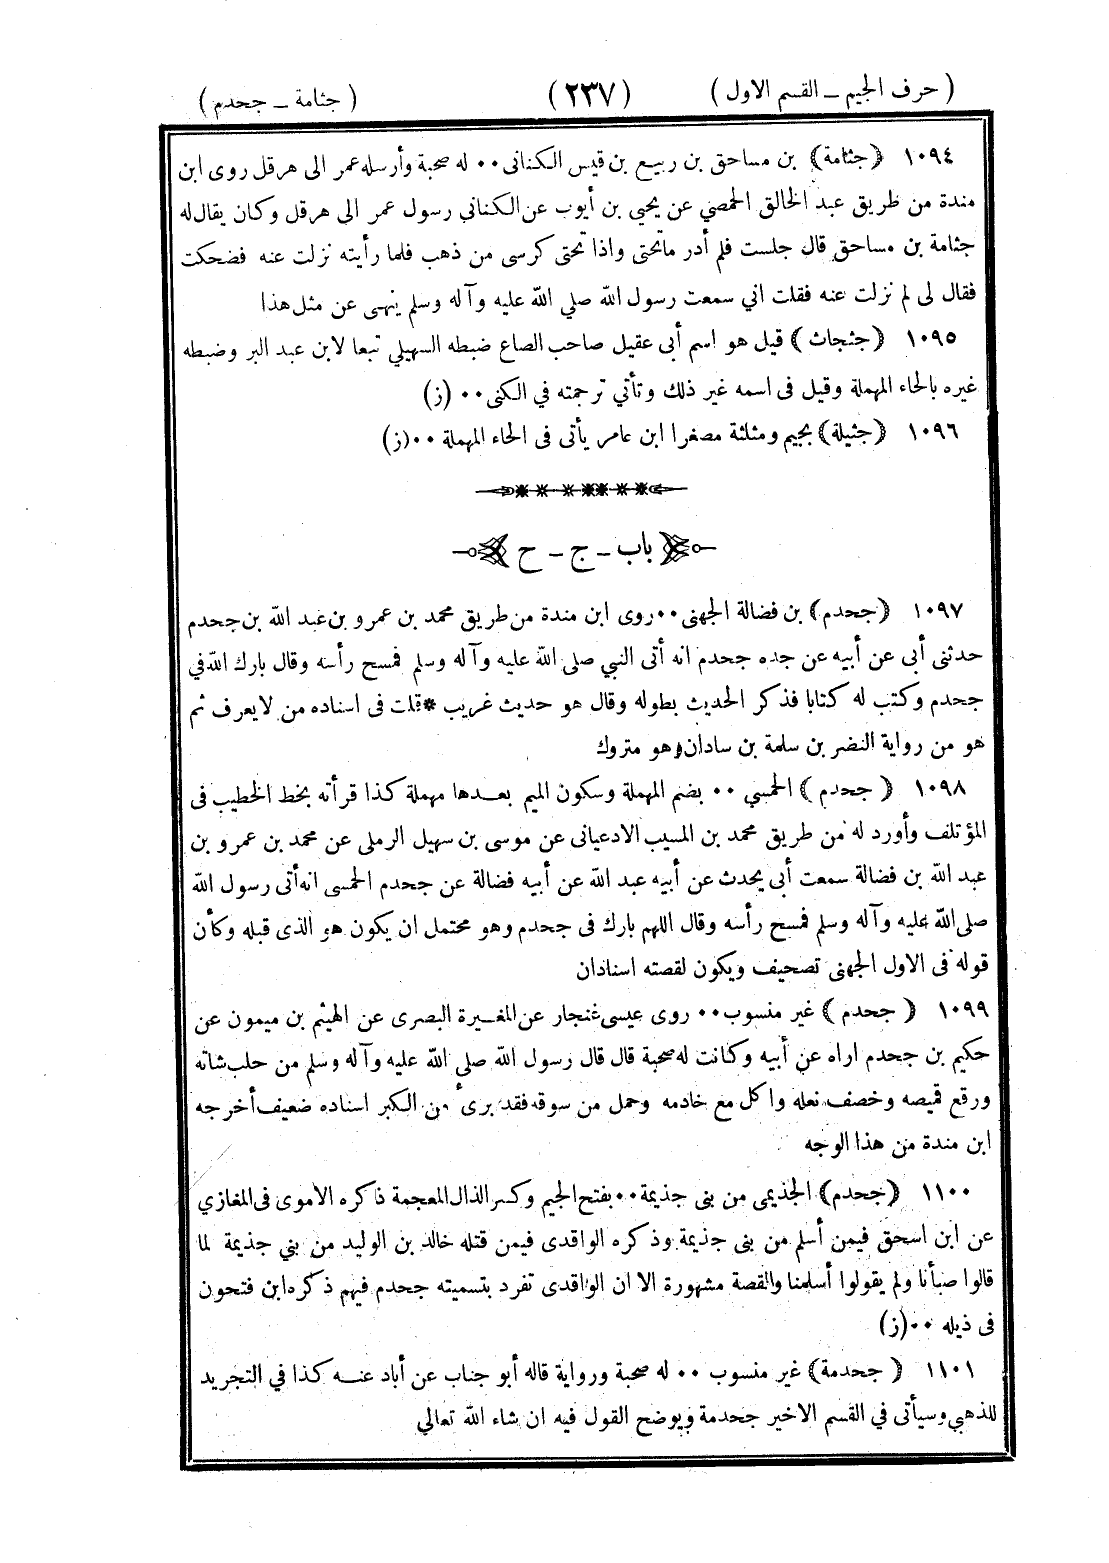 ( حرف الجيم ــ القسم الاول ) (٢٣٧) ( جثامة ــ جحدم )
١٠٩٤ (جثامة) بن مساحق بن ربيع بن قيس الكنانى٠٠ له صحبة وأرسله عمر الى هرقل روى ابن
مندة من طريق عبد الخالق الحمصي عن يحيي بن أيوب عن الكناني رسول عمر الى هرقل وكان يقال له
جثامة بن مساحق قال جلست فلم أدر ماتحتى واذا تحتى كرسى من ذهب فلما رأيته نزلت عنه فضحكت
فقال لى لم نزلت عنه فقلت اني سمعت رسول الله صلي الله عليه وآله وسلم ينهى عن مثل هذا
١٠٩٥ (جثجاث) قيل هو اسم أبى عقيل صاحب الصاع ضبطه السهيلي تبعا لابن عبد البر وضبطه
غيره بالحاء المهملة وقيل فى اسمه غير ذلك وتأتي ترجمته في الكنى٠٠ (ز)
١٠٩٦ (جثيلة) بجيم ومثلثة مصغرا ابن عامر يأتى فى الحاء المهملة ٠٠(ز)
باب ــ ج ــ ح
١٠٩٧ (جحدم) بن فضالة الجهنى٠٠روى ابن مندة من طريق محمد بن عمرو بن عبد الله بن جحدم
حدثنى أبى عن أبيه عن جده جحدم انه أتى النبي صلى الله عليه وآله وسلم فمسح رأسه وقال بارك الله في
جحدم وكتب له كتابا فذكر الحديث بطوله وقال هو حديث غريب *قلت فى اسناده من لايعرف ثم
هو من رواية النضر بن سلمة بن سادان وهو متروك
١٠٩٨ ( جحدم ) الحمسي ٠٠ بضم المهملة وسكون الميم بعدها مهملة كذا قرأته بخط الخطيب فى
المؤتلف وأورد له من طريق محمد بن المسيب الادعيانى عن موسى بن سهيل الرملى عن محمد بن عمرو بن
عبد الله بن فضالة سمعت أبى يحدث عن أبيه عبد الله عن أبيه فضالة عن جحدم الحمسى انه أتى رسول الله
صلى الله عليه وآله وسلم فمسح رأسه وقال اللهم بارك فى جحدم وهو محتمل ان يكون هو الذى قبله وكأن
قوله فى الاول الجهنى تصحيف ويكون لقصته اسنادان
١٠٩٩ ( جحدم ) غير منسوب٠٠ روى عيسى غنجار عن المغيرة البصرى عن الهيثم بن ميمون عن
حكيم بن جحدم اراه عن أبيه وكانت له صحبة قال قال رسول الله صلي الله عليه وآله وسلم من حلب شاته
ورقع قميصه وخصف نعله واكل مع خادمه وحمل من سوقه فقد برئ من الكبر اسناده ضعيف أخرجه
ابن مندة من هذا الوجه
١١٠٠ (جحدم) الجذيمى من بنى جذيمة٠٠بفتح الجيم وكسر الذال المعجمة ذاكره الاموى فى المغازي
عن ابن اسحق فيمن أسلم من بنى جذيمة وذكره الواقدى فيمن قتله خالد بن الوليد من بني جذيمة لما
قالوا صبأنا ولم يقولوا أسلمنا والقصة مشهورة الا ان الواقدى تفرد بتسميته جحدم فيهم ذكره ابن فتحون
فى ذيله ٠٠(ز)
١١٠١ ( جحدمة) غير منسوب ٠٠ له صحبة ورواية قاله أبو جناب عن أباد عنه كذا في التجريد
للذهبي وسيأتى في القسم الاخير جحدمة ويوضح القول فيه ان شاء الله تعالي